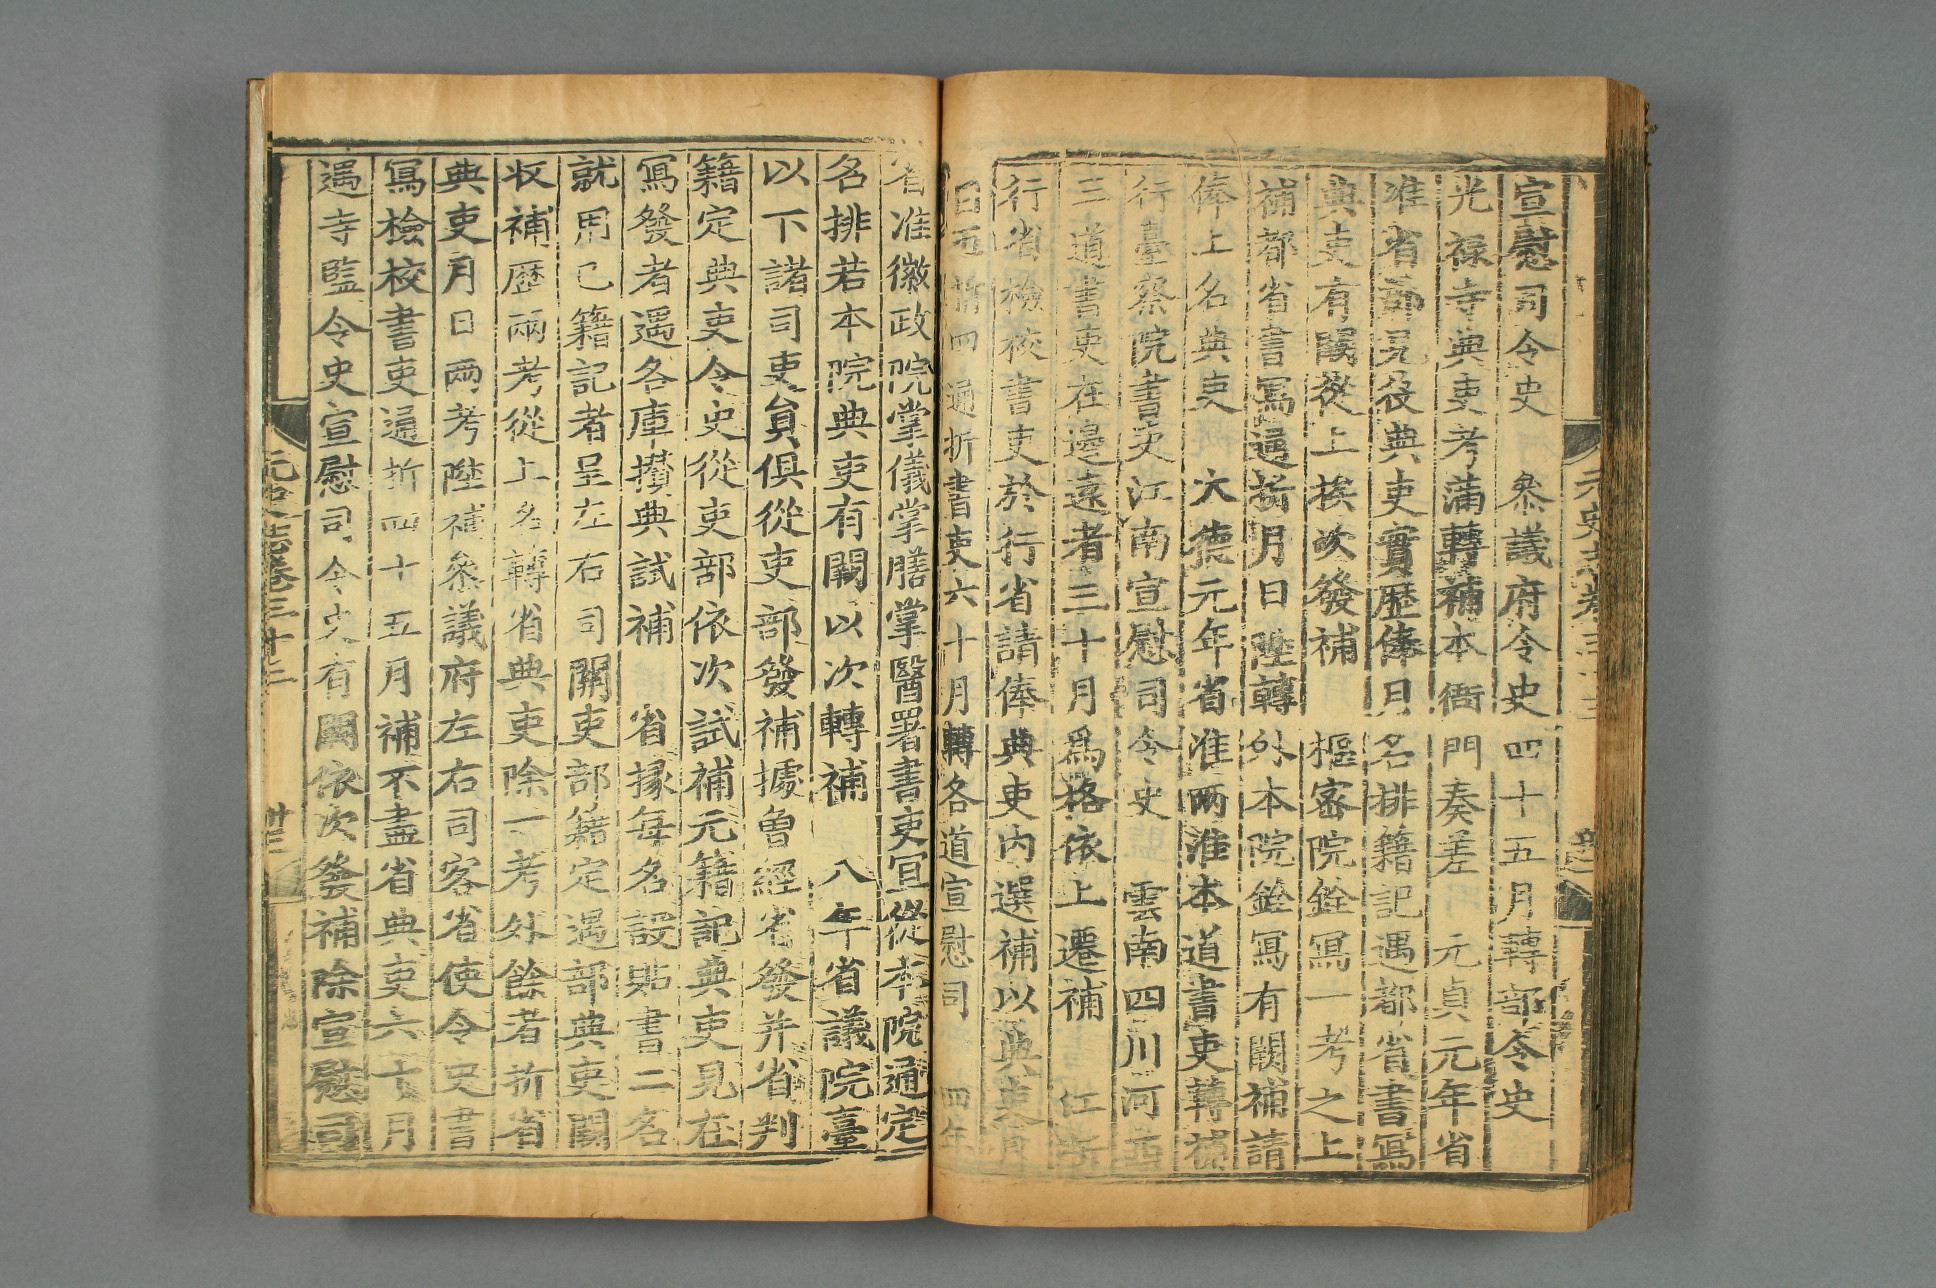 宣慰司令史 參議府令史四十五月轉部令史
光祿寺典吏考滿轉補本衙門奏差 元貞元年省
准省部見役典吏實歷俸月名排籍記遇都省書寫
典吏有闕從上挨次發補 樞密院銓寫一考之上
補都省書寫通折月日陞轉 外本院銓寫有闕補請
俸上名典吏 大德元年省准兩淮本道書吏轉補
行臺察院書吏江南宣慰司令史 雲南四川河西
三道書吏在邊遠者三十月爲格依上遷補 江浙
行省檢校書吏於行省請俸典吏內選補以典吏月
四通折書吏六十月轉各道宣慰司 四年
省准徽政院掌儀掌膳掌醫署書吏宜從本院通定
名排若本院典吏有闕以次轉補 八年省議院臺
以下諸司吏員俱從吏部發補據曾經省發并省判
籍定典吏令史從吏部依次試補元籍記典吏見在
寫發者遇各庫攢典試補 省掾每名設貼書二名
就用已籍記者呈左右司關吏部籍定遇部典吏闕
收補歷兩考從上名轉省典吏除一考外餘者折省
典吏月日兩考陞補參議府左右司客省使令史書
寫檢校書吏通折四十五月補不盡省典吏六十月
遇寺監令史宣慰司令史有闕依次發補除宣慰司
元史志卷三十三
卅三